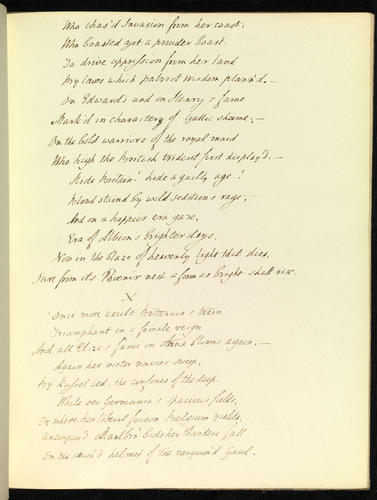 Who chas'd Invasion from her coast,
Who boasted yet a prouder boast
To drive oppression from her land
By laws which patriot Wisdom plann'd. —
On Edward's and on Henry's fame
Mark'd in characters of Gallic shame; —
On the bold warriors of the royal maid
Who high the British trident first display'd. —
Hide Britain! hide a guilty age!
Blood stained by wild seditions rage;
And on a happier era gaze,
Era of Albion's brighter days.
Now in the blaze of heavenly light that dies,
Sure from its Phoenix nest a form as bright shall rise.
X
Once more exult Britannia's train
Triumphant in a female reign
And all Eliza's fame in Anna blooms again. —
Again her victor navies sweep,
By Russel led, the confines of the deep.
While oer Germania's spacious fields,
Or where her liberal foison Belgium yields,
Unconquer'd Marlbro' bids her thunders fall
On the helmet of the vanquish'd Gaul.